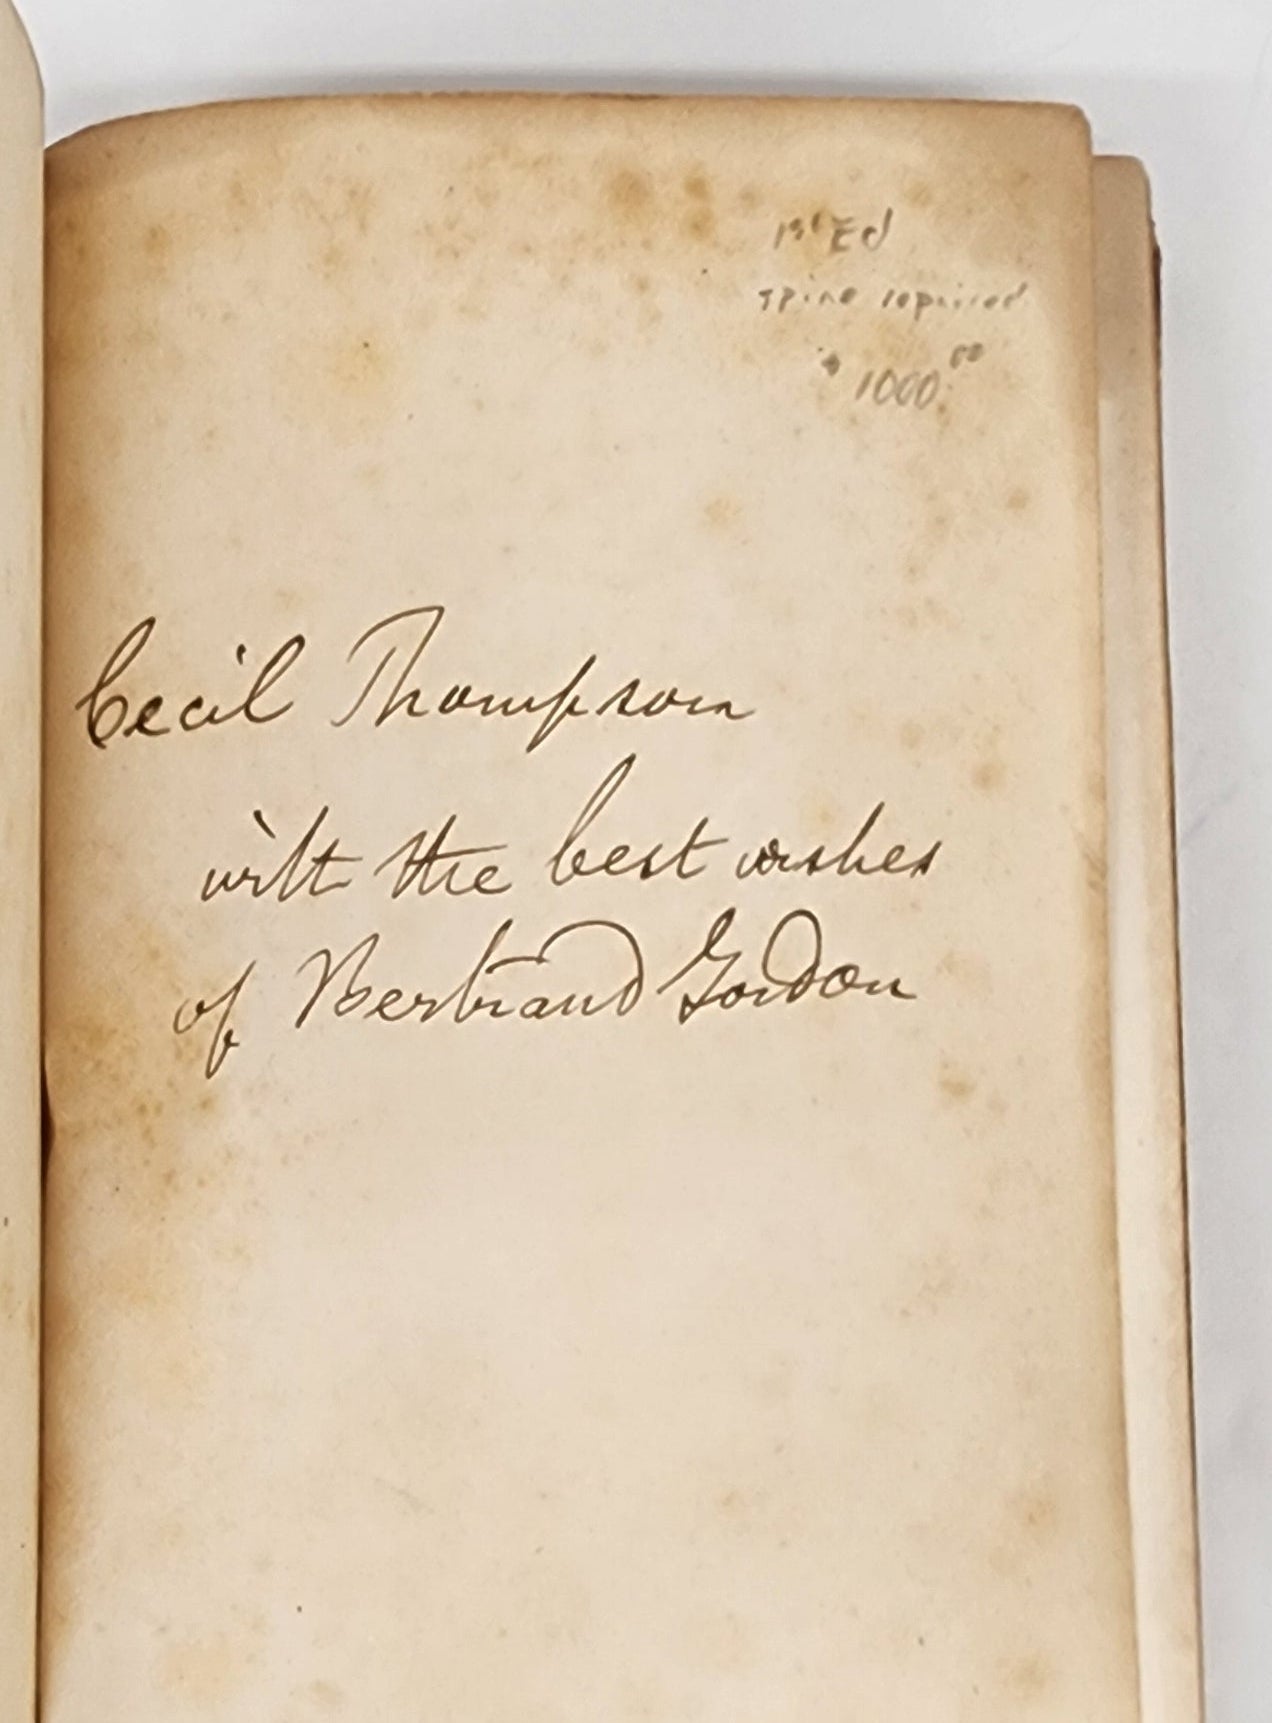 1st Ed
spine repaired
$1000.00
Cecil Thompson
with the best wishes
of Bertrand Gordon